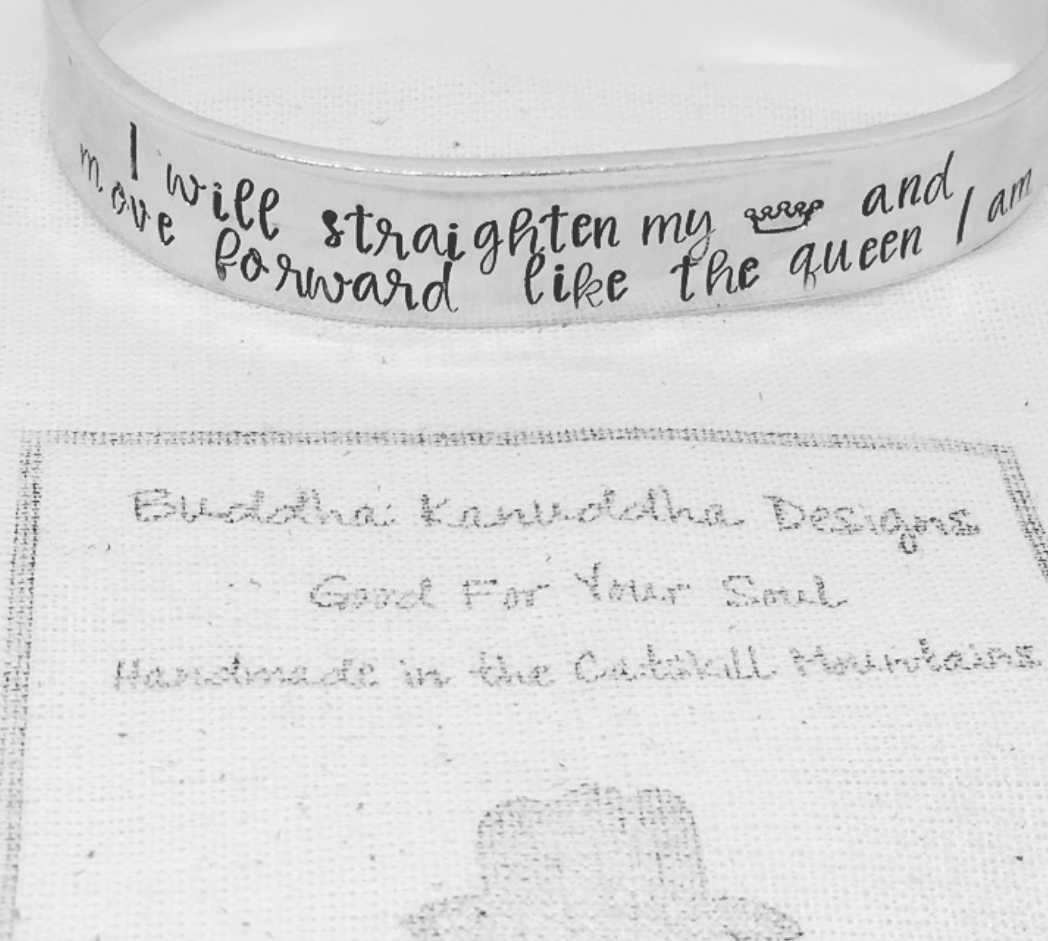 I will straighten my and
move forward like the queen I am
Buddha Kanuddha Designs
Good For Your Soul
Handmade in the Catskill Mountains